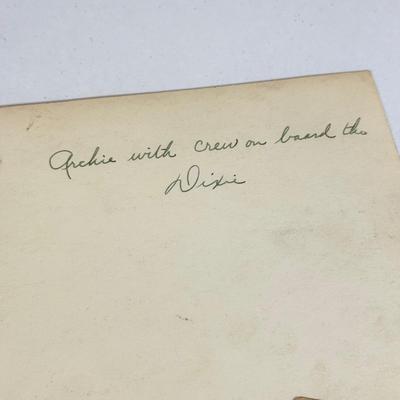 Archie with crew on board the
Dixie